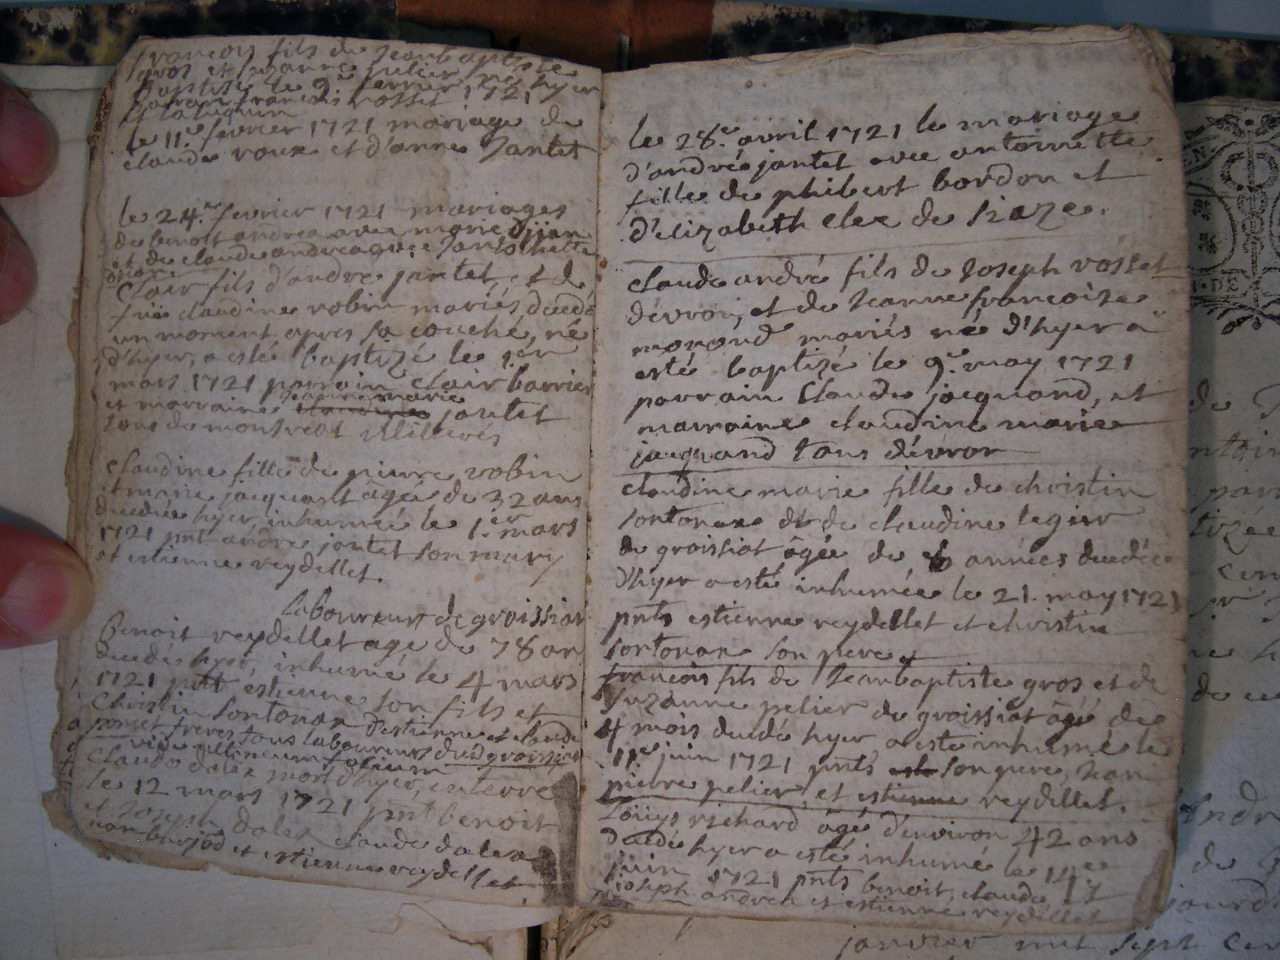 francois fils de Jeanbaptiste
gros et suzanne pelier né hyer
baptisé le 9.e fevrier 1721
parrain francois rosset
le 11.e fevrier 1721 mariage de
claude roux et d'anne Jantet
le 24.e fevrier 1721 mariages
de benoit andrea avec marie
et de claude andrea avec
Clair fils d'andré jantet, et de
füe claudine robin mariés, decedé
un moment apres sa couche, né
d'hyer, a esté baptizé le 1.er
mars 1721 parrain clair barrier
et marraine jeanne marie jantet
tous de montreal illiterés
claudine fille de pierre robin
et marie jacquant âgée de 32 ans
decedée hyer inhumée le 1.er mars
1721 pnt andré jantet son mary
et estienne reydellet.
laboureur de groissiat
Benoit reydellet age de 78 an
decedés hyer, inhumé le 4 mars
1721 pnt estienne son fils et
Christin Sontonax d'estienne et claude
poncet freres tous laboureurs dud groissiat
vide ultimum folium
Claude dalex mort d'hyer, enterré
le 12 mars 1721 pnt benoit
et Joseph dalex claude dalex
et estienne reydellet
le 28.e avril 1721 le mariage
d'andré jantet avec antoinette
fille de philbert bordon et
d'elizabeth elex de siaze.
Claude andré fils de Joseph rosset
d'évron, et de Jeanne françoize
morond mariés né d'hyer a
esté baptizé le 9.e may 1721
parrain Claude jacquand, et
marraine claudine marie
jacquand tous d'évron
Claudine marie fille de christin
Sontonax et de claudine legier
de groissiat âgée de 6 années decedée
d'hyer a esté inhumée le 21. may 1721
pnts estienne reydellet et christin
sontonax son pere
francois fils de Jeanbaptiste gros et de
Suzanne pelier de groissiat âgé de
4 mois decedé hyer a esté inhumé le
11.e juin 1721 pnts son pere, Jean
pierre pelier, et estienne reydellet.
Louys richard âgé d'environ 42 ans
decedé hyer a esté inhumé le 14.e
juin 1721 pnts benoit, claude, et
joseph andrea et estienne reydellet
janvier mil sept cen